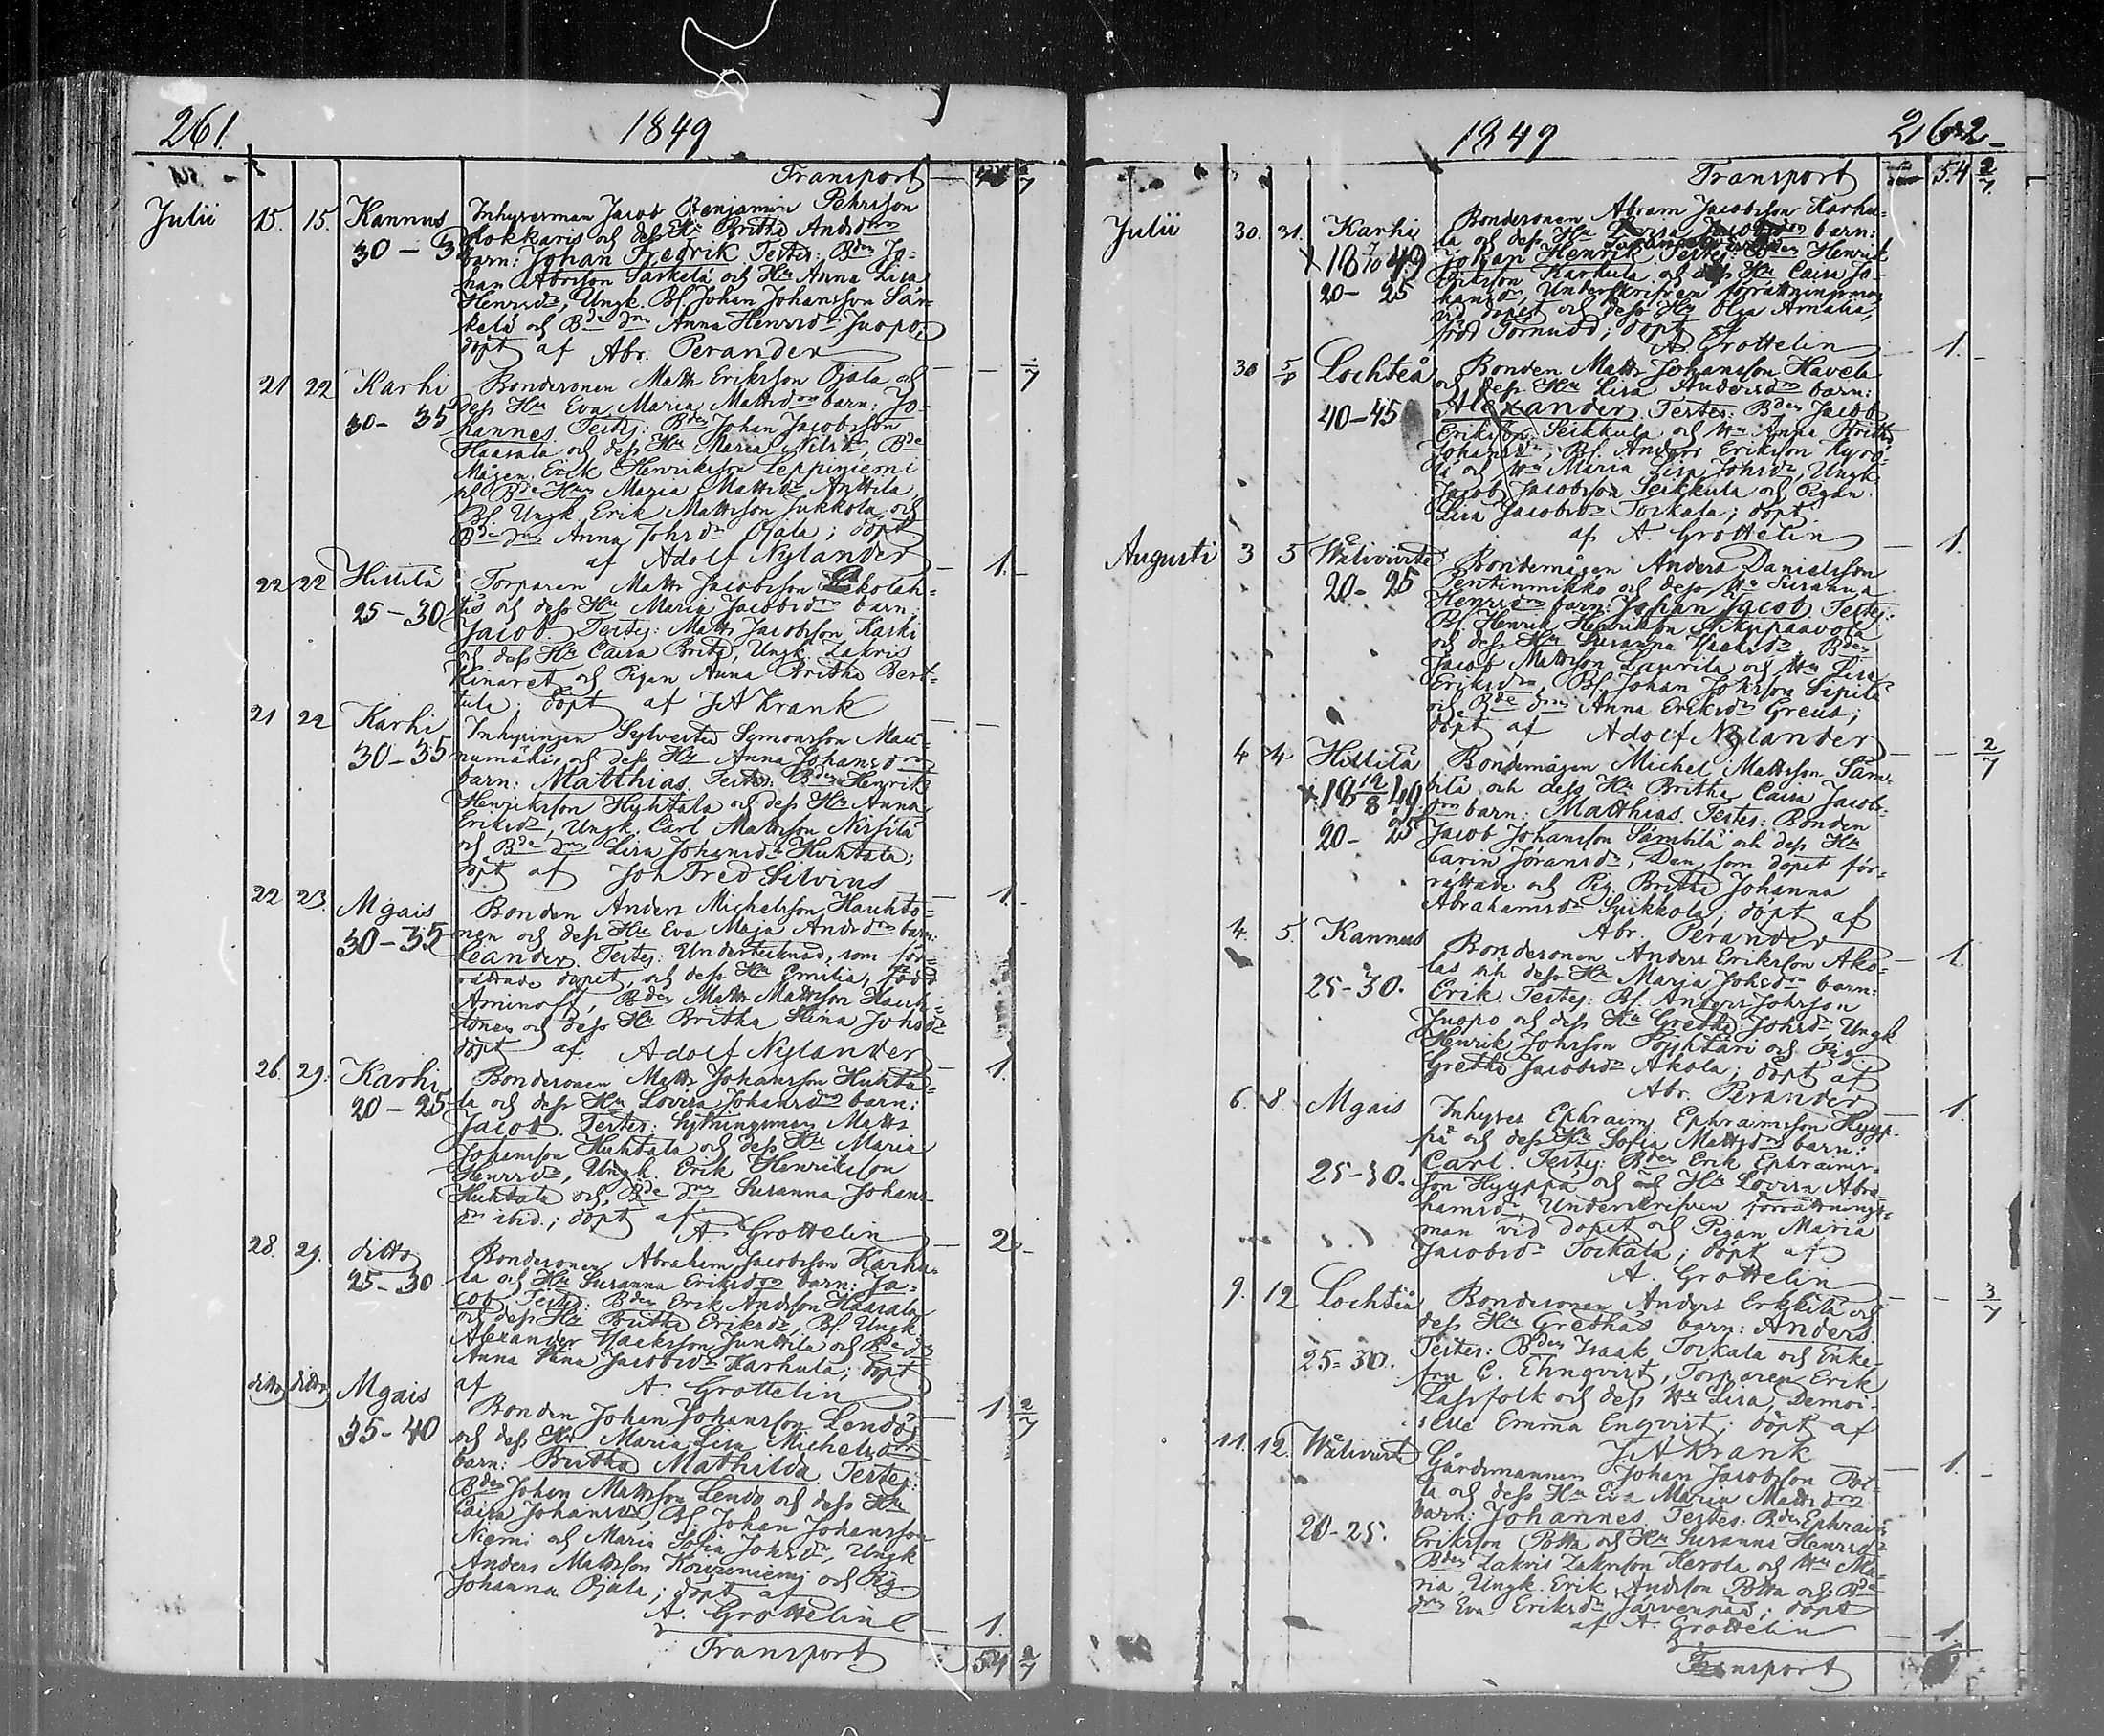 261.
1849
Transport
Julii 15. 15. Kannus Inhysesman Jacob Benjamin Pehrsson
30 – 3 och dess Hu Britha Andsdrs
barn: Johan Fredrik. Testes: Bden Jo-
han Abrsson Särkelä och Hu Anna Lisa
Henrsdr, Ungk. Bs. Johan Johansson Sär-
kelä och Bde dr Anna Henrsdr Juopo;
döpt af Abr. Perander
21 22 Karhi Bondesonen Matts Eriksson Ojala och
dess Hu Eva Maria Mattsdrs barn: Jo-
30 – 35 hannes. Testes: Bden Johan Jacobsson
Haasala och dess Hu Maria Nilsdr, Bde
Mågen Erik Henriksson Leppiniemi
och Bde Hu Maria Mattsdr Anttila,
Bs. Ungk. Erik Mattsson Jukkola och
Bde dr Anna Johsdr Ojala; döpt
af Adolf Nylander 1.
22 22 Hillilä Torparen Matts Jacobsson
25 – 30 och dess Hu Maria Jacobsdrs barn:
Jacob. Testes: Matts Jacobsson Karhi
och dess Hu Caisa Brita, Ungk. Zakris
och Pigan Anna Britha Bert-
tula; döpt af J A Krank
21 22 Karhi Inhysingen Sylvester Simonsson Mau-
30 – 35 numäki, och dess Hu Anna Johansdrs
barn: Matthias. Testes: Bden Henrik
Henriksson Huhtala och dess Hu Anna
Eriksdr, Ungk. Carl Mattsson Nirsilä
och Bde dr Lisa Johansdr Huhtala;
döpt af Joh Fred Silvius
22 23. Mgais Bonden Anders Michelsson Hauhto- 1.
30 – 35 nen och dess Hu Eva Maja Andsdrs barn:
Leander. Testes: Undertecknad, som för-
rättade dopet, och dess Hu Emilia, född
Aminoff, Bden Matts Mattsson Hauh-
tonen och dess Hu Britha Stina Johsdr
döpt af Adolf Nylander
26. 29. Karhi Bondesonen Matts Johansson Huhta- 1.
20 – 25 la och dess Hu Lovisa Johansdrs barn:
Jacob. Testes: Sytningsman Matts
Johansson Huhtala och dess Hu Maria
Henrsdr, Ungk. Erik Henriksson
Huhtala och Bde dr Susanna Johans-
dr ibid.; döpt af
A. Grottelin 2.
28. 29. ditto Bondesonen Abraham Jacobsson Karhu-
25 – 30 la och Hu Susanna Eriksdrs barn: Ja-
cob. Testes: Bden Erik Andsson Haasala
och dess Hu Britha Eriksdr, Bs. Ungk.
Alexander Isacksson Junttila och Bde dr
Anna Stina Jacobsdr Karhula; döpt
af A. Grottelin
ditto ditto Mgais Bonden Johan Johansson Lendo 1 2/7
35 – 40 och dess Hu Maria Lisa Michelsdrs
barn: Britha Mathilda. Testes:
Bden Johan Mattsson Lendo och dess Hu
Caisa Johansdr, Bs. Johan Johansson
Niemi och Maria Sofia Johsdr, Ungk
Anders Mattsson Koivuniemi och Pig.
Johanna Ojala; döpt af
A. Grottelin 1.
Transport 54 2/7
1849
262
Transport 54 2/7
Julii 30. 31. Karhi Bondesonen Abram Jacobsson Karhu-
la och dess Hu barn:
+ 18 7/10 49 Johan Henrik. Testes: Bden Henrik
Eriksson Karhula och dess Hu Caisa Jo-
20 – 25 hansdr, Underskrifven förrättningsman
vid dopet och dess Hu Olga Amalia,
född Törnudd; döpt af
A. Grottelin 1.
30 5/8 Lochteå Bonden Matts Johansson Havela
och dess Hu Lisa Andersdrs barn:
40 – 45 Alexander. Testes: Bden Jacob
Eriksson Seikkula och Hu Anna Britha
Johansdr, Bs. Anders Eriksson
och Hu Maria Lisa Johsdr, Ungk.
Jacob Jacobsson Seikkula och Pigan
Lisa Jacobsdr Torkala; döpt
af A Grottelin 1.
Augusti 3 5 Wälivirte Bondemågen Anders Danielsson
20 – 25 Pentinmikko och dess Hu Susanna
Henrsdrs barn: Johan Jacob. Testes:
Bs. Henrik Henriksson
och dess Hu Susanna Isacksdr, Bden
Jacob Mattsson Laurila och Hu Lisa
Eriksdr, Bs. Johan Johsson Sipilä
och Bde dr Anna Eriksdr Greus;
döpt af Adolf Nylander
4 4 Hillilä Bondemågen Michel Mattsson Säm- 2/7
+ 18 19/8 49 tilä och dess Hu Britha Caisa Jacobs-
drs barn: Matthias. Testes: Bonden
20 – 25 Jacob Johansson Sämtilä och dess Hu
Carin Jöransdr, Den, som dopet för-
rättade och Pig. Britha Johanna
Abrahamsdr Sukkola; döpt af
Abr. Perander
4. 5. Kannus Bondesonen Anders Eriksson Ako- 1.
las och dess Hu Maria Johsdrs barn:
25 – 30. Erik. Testes: Bs. Anders Johsson
Juopo och dess Hu Gretha Johsdr, Ungk
Henrik Johsson och Pig
Gretha Jacobsdr Akola; döpt af
Abr. Perander
6. 8. Mgais Inhyses Ephraim Ephraimsson Hyyp- 1.
pä och dess Hu Sofia Mattsdrs barn:
Carl. Testes: Bden Erik Ephraims-
25 – 30. son Hyyppä och Hu Lovisa Abra-
hamsdr, Underskrifven förrättnings-
man vid dopet och Pigan Maria
Jacobsdr Torkala; döpt af
A. Grottelin
9. 12 Lochteå Bondesonen Anders Erkkilä och 3/7
dess Hu Grethas barn: Anders.
25 – 30. Testes: Bden Isaak Torkala och Enke-
fru C. Ehnqvist, Torparen Erik
Lassfolk och dess Hu Lisa, Demoi-
selle Emma Enqvist; döpt af
J. A Krank
11. 12. Wälivirte Gårdsmannen Johan Jacobsson Pot- 1.
ta och dess Hu Eva Maria Mattsdrs
barn: Johannes. Testes: Bden Ephraim
20 – 25. Eriksson Potta och Hu Susanna Henrsdr
Bden Zakris Zakrisson Kerola och Hu Ma-
ria, Ungk. Erik Andsson Potta och Bde
dr Eva Eriksdr Järvenpää; döpt
af A. Grottelin 1.
Transport